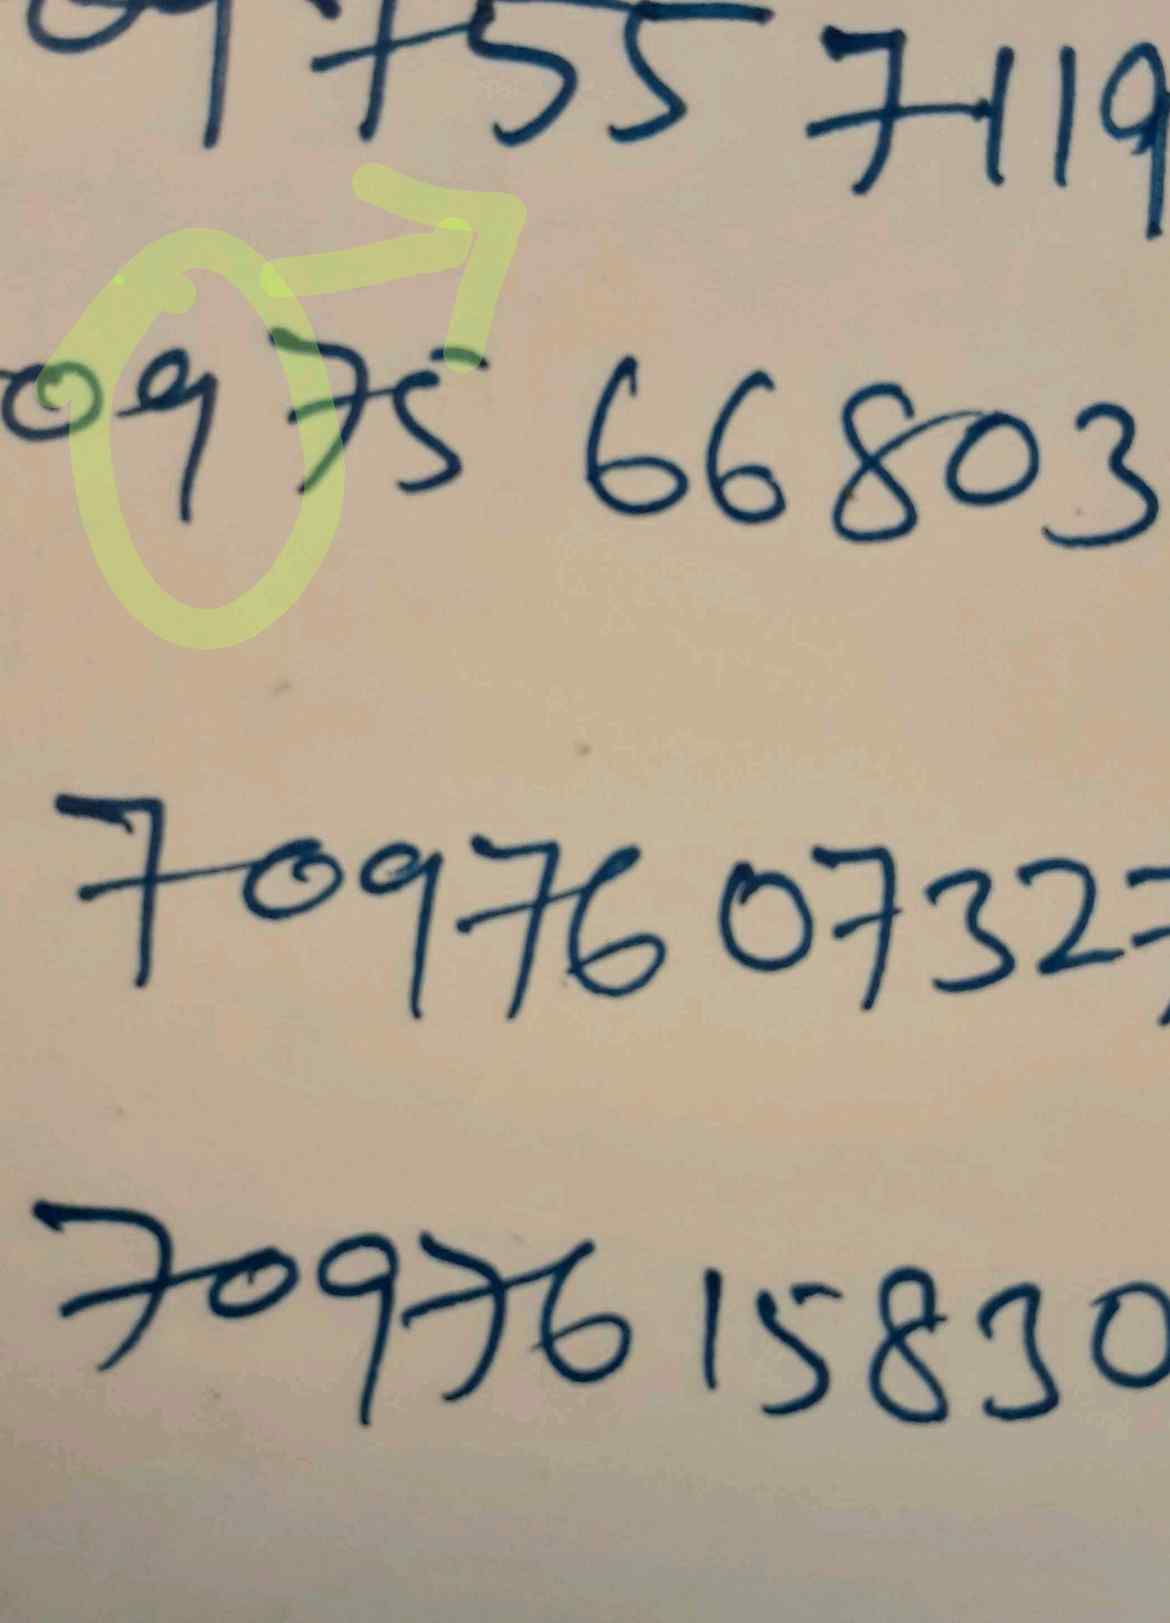 09755 7119
0975 66803
70976 07327
70976 15830